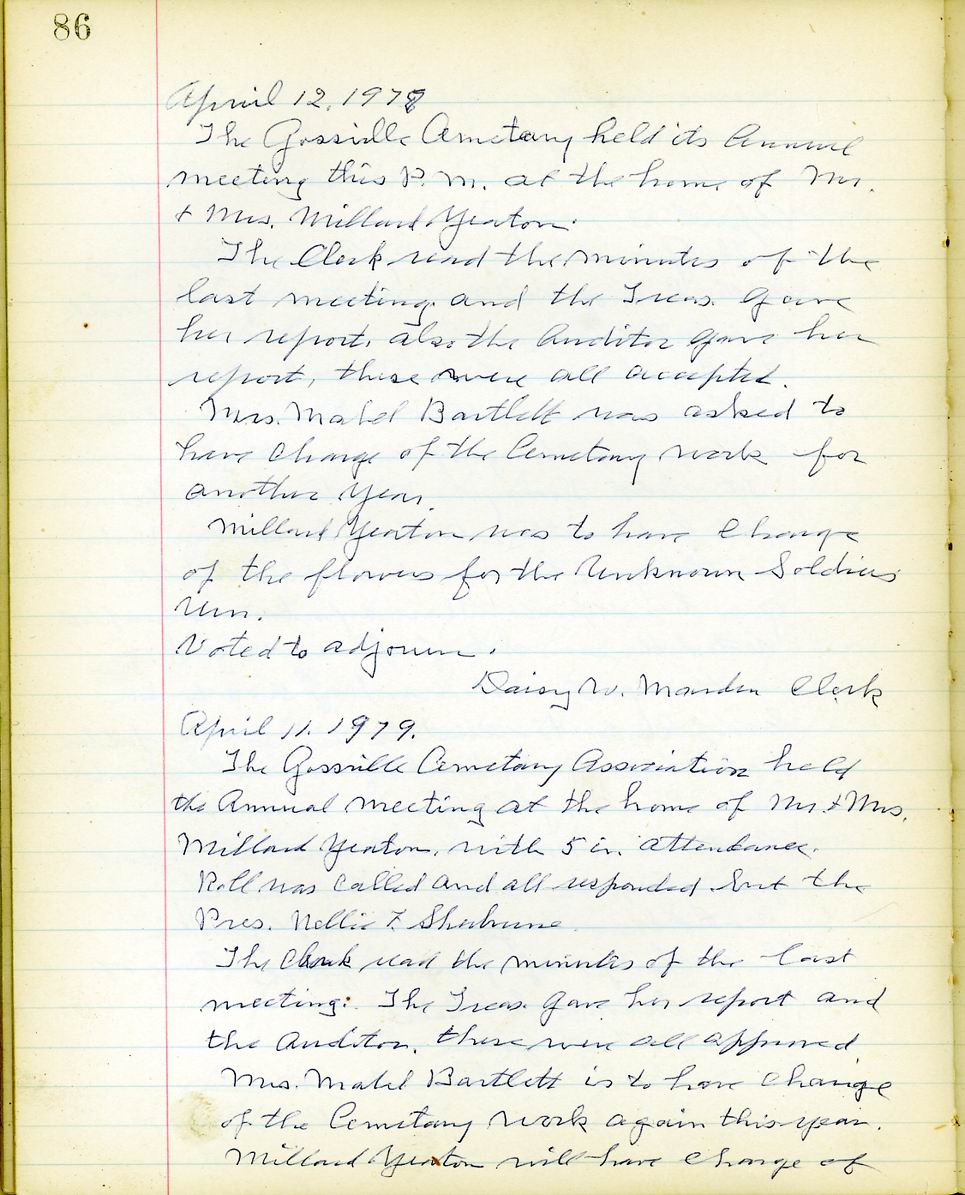 86
April 12, 1978
The Gossville Cemetary held its Annual
meeting this P.M. at the home of Mr.
+ Mrs. Millard Yeaton.
The Clerk read the minutes of the
last meeting and the Treas. gave
her report, also the Auditor gave her
report, these were all accepted.
Mrs. Mabel Bartlett was asked to
have charge of the Cemetary work for
another year.
Millard Yeaton was to have charge
of the flowers for the Unknown Soldiers
Urn.
Voted to adjourn.
Daisy W. Marden Clerk
April 11, 1979.
The Gossville Cemetary Association held
the Annual meeting at the home of Mr. + Mrs.
Millard Yeaton, with 5 in attendance.
Roll was called and all responded but the
Pres. Nellie F. Sherburne
The Clerk read the minutes of the last
meeting. The Treas. gave her report and
the Auditor, these were all approved
Mrs. Mabel Bartlett is to have charge
of the Cemetary work again this year.
Millard Yeaton will have charge of